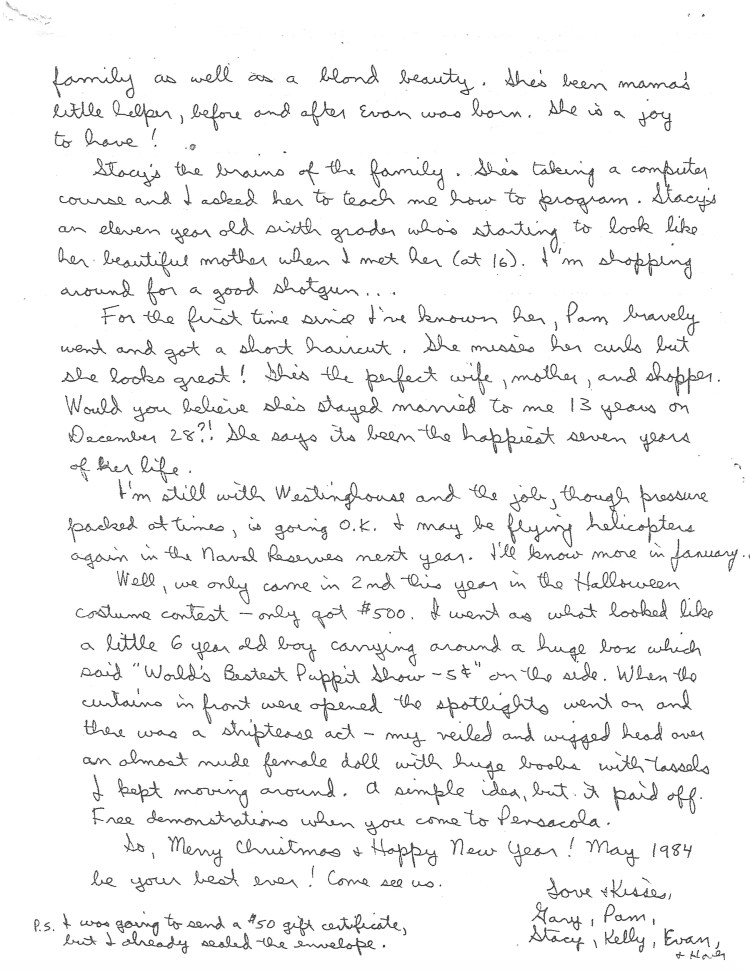 family as well as a blond beauty. She's been mama's
little helper, before and after Evan was born. She is a joy
to have!
Stacy's the brains of the family. She's taking a computer
course and I asked her to teach me how to program. Stacy's
an eleven year old sixth grader who's starting to look like
her beautiful mother when I met her (at 16). I'm shopping
around for a good shotgun...
For the first time since I've known her, Pam bravely
went and got a short haircut. She misses her curls but
she looks great! She's the perfect wife, mother, and shopper.
Would you believe she's stayed married to me 13 years on
December 28?! She says its been the happiest seven years
of her life.
I'm still with Westinghouse and the job, though pressure
packed at times, is going O.K. I may be flying helicopters
again in the Naval Reserves next year. I'll know more in January.
Well, we only came in 2nd this year in the Halloween
costume contest - only got $500. I went as what looked like
a little 6 year old boy carrying around a huge box which
said "World's Bestest Puppit Show - 5¢" on the side. When the
curtains in front were opened the spotlights went on and
there was a striptease act - my veiled and wigged head over
an almost nude female doll with huge boobs with tassels
I kept moving around. A simple idea, but it paid off.
Free demonstrations when you come to Pensacola.
So, Merry Christmas & Happy New Year! May 1984
be your best ever! Come see us.
Love & Kisses,
Gary, Pam,
Stacy, Kelly, Evan,
&
P.S. I was going to send a $50 gift certificate,
but I already sealed the envelope.